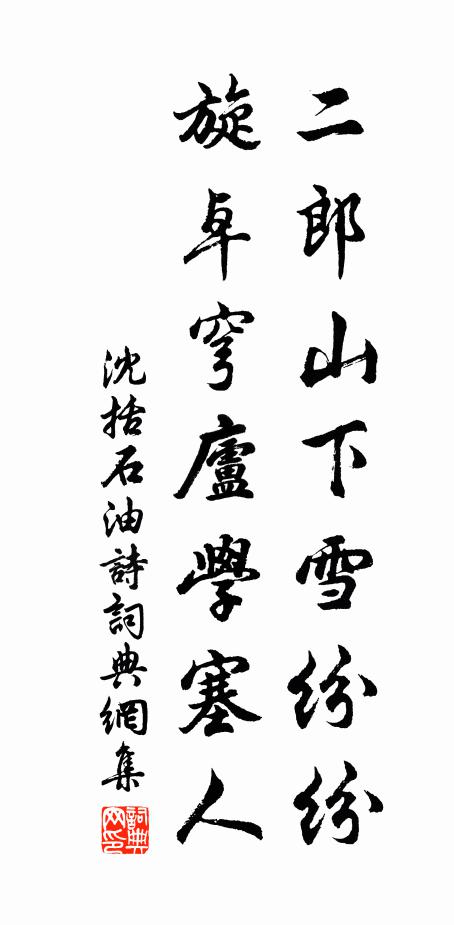 二郎山下雪紛紛
旋卓穹廬學塞人
沈括石油詩詞典網集
詞典网印